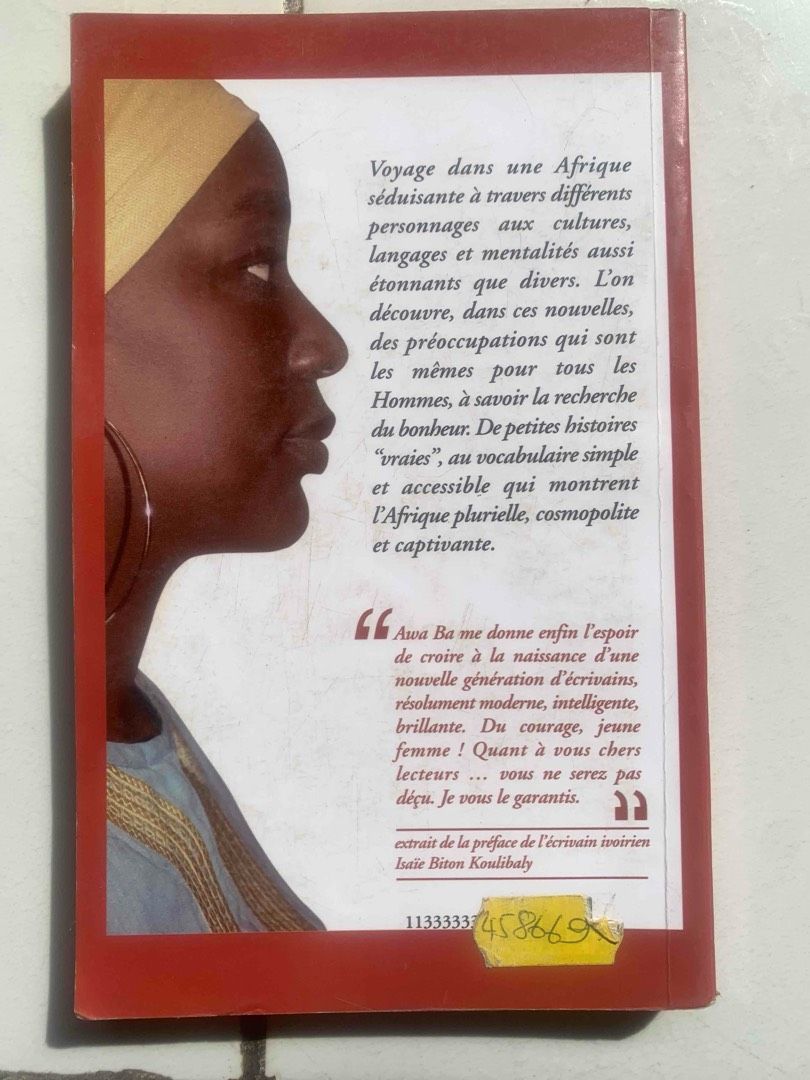 Voyage dans une Afrique
séduisante à travers différents
personnages aux cultures,
langages et mentalités aussi
étonnants que divers. L'on
découvre, dans ces nouvelles,
des préoccupations qui sont
les mêmes pour tous les
Hommes, à savoir la recherche
du bonheur. De petites histoires
"vraies", au vocabulaire simple
et accessible qui montrent
l'Afrique plurielle, cosmopolite
et captivante.
“ Awa Ba me donne enfin l'espoir
de croire à la naissance d'une
nouvelle génération d'écrivains,
résolument moderne, intelligente,
brillante. Du courage, jeune
femme ! Quant à vous chers
lecteurs ... vous ne serez pas
déçu. Je vous le garantis. ”
extrait de la préface de l'écrivain ivoirien
Isaïe Biton Koulibaly